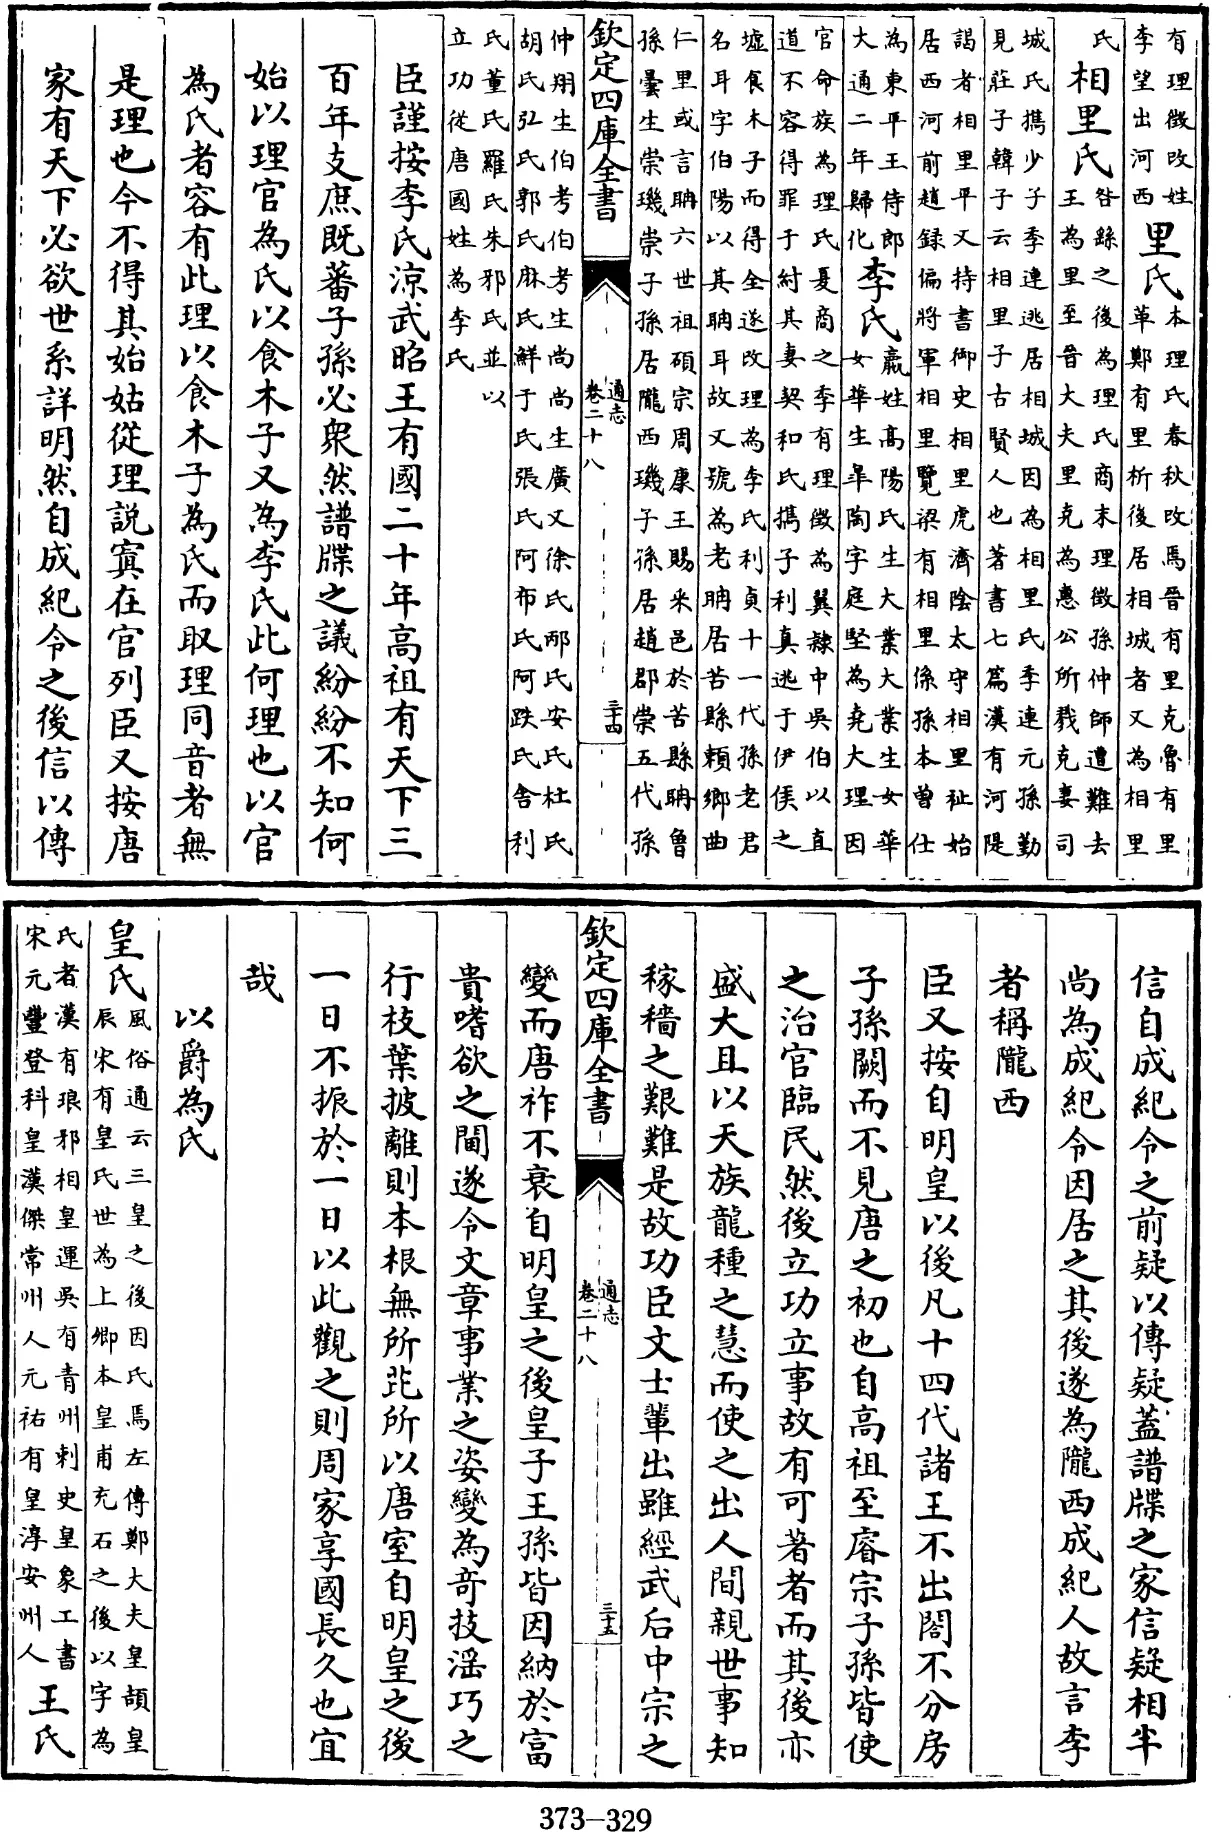 有理徴改姓
李望出河西
里氏
本理氏春秋改焉晉有里克魯有里
革鄭有里析後居相城者又為相里
氏
相里氏
咎繇之後為理氏商末理徴孫仲師遭難去
王為里至晉大夫里克為惠公所戮克妻司
城氏携少子季連逃居相城因為相里氏季連元孫勤
見莊子韓子云相里子古賢人也著書七篇漢有河隄
謁者相里平又持書御史相里虎濟陰太守相里祉始
居西河前趙録偏將軍相里覽梁有相里係孫本曽仕
為東平王侍郎
大通二年歸化
李氏
嬴姓髙陽氏生大業大業生女華
女華生臯陶字庭堅為堯大理因
官命族為理氏夏商之季有理徴為翼隸中吳伯以直
道不容得罪于紂其妻契和氏携子利真逃于伊侯之
墟食木子而得全遂改理為李氏利貞十一代孫老君
名耳字伯陽以其聃耳故又號為老聃居苦縣頼鄉曲
仁里或言聃六世祖碩宗周康王賜采邑於苦縣聃魯
孫曇生崇璣崇子孫居隴西璣子孫居趙郡崇五代孫
欽定四庫全書
通志
卷二十八
三十四
仲翔生伯考伯考生尚尚生廣又徐氏邴氏安氏杜氏
胡氏弘氏郭氏麻氏鮮于氏張氏阿布氏阿跌氏舍利
氏董氏羅氏朱邪氏並以
立功從唐國姓為李氏
臣謹按李氏涼武昭王有國二十年高祖有天下三
百年支庶既蕃子孫必衆然譜牒之議紛紛不知何
始以理官為氏以食木子又為李氏此何理也以官
為氏者容有此理以食木子為氏而取理同音者無
是理也今不得其始姑從理說寘在官列臣又按唐
家有天下必欲世系詳明然自成紀令之後信以傳
信自成紀令之前疑以傳疑蓋譜牒之家信疑相半
尚為成紀令因居之其後遂為隴西成紀人故言李
者稱隴西
臣又按自明皇以後凡十四代諸王不出閤不分房
子孫闕而不見唐之初也自高祖至睿宗子孫皆使
之治官臨民然後立功立事故有可著者而其後亦
盛大且以天族龍種之慧而使之出人間親世事知
稼穡之艱難是故功臣文士輩出雖經武后中宗之
欽定四庫全書
通志
卷二十八
三十五
變而唐祚不衰自明皇之後皇子王孫皆因納於富
貴嗜欲之閫遂令文章事業之姿變為竒技滛巧之
行枝葉披離則本根無所庇所以唐室自明皇之後
一日不振於一日以此觀之則周家享國長久也宜
哉
以爵為氏
皇氏
風俗通云三皇之後因氏焉左傳鄭大夫皇頡皇
辰宋有皇氏世為上卿本皇甫充石之後以字為
氏者漢有琅邪相皇運吳有青州刺史皇象工書
宋元豐登科皇漢傑常州人元祐有皇淳安州人
王氏
373–329